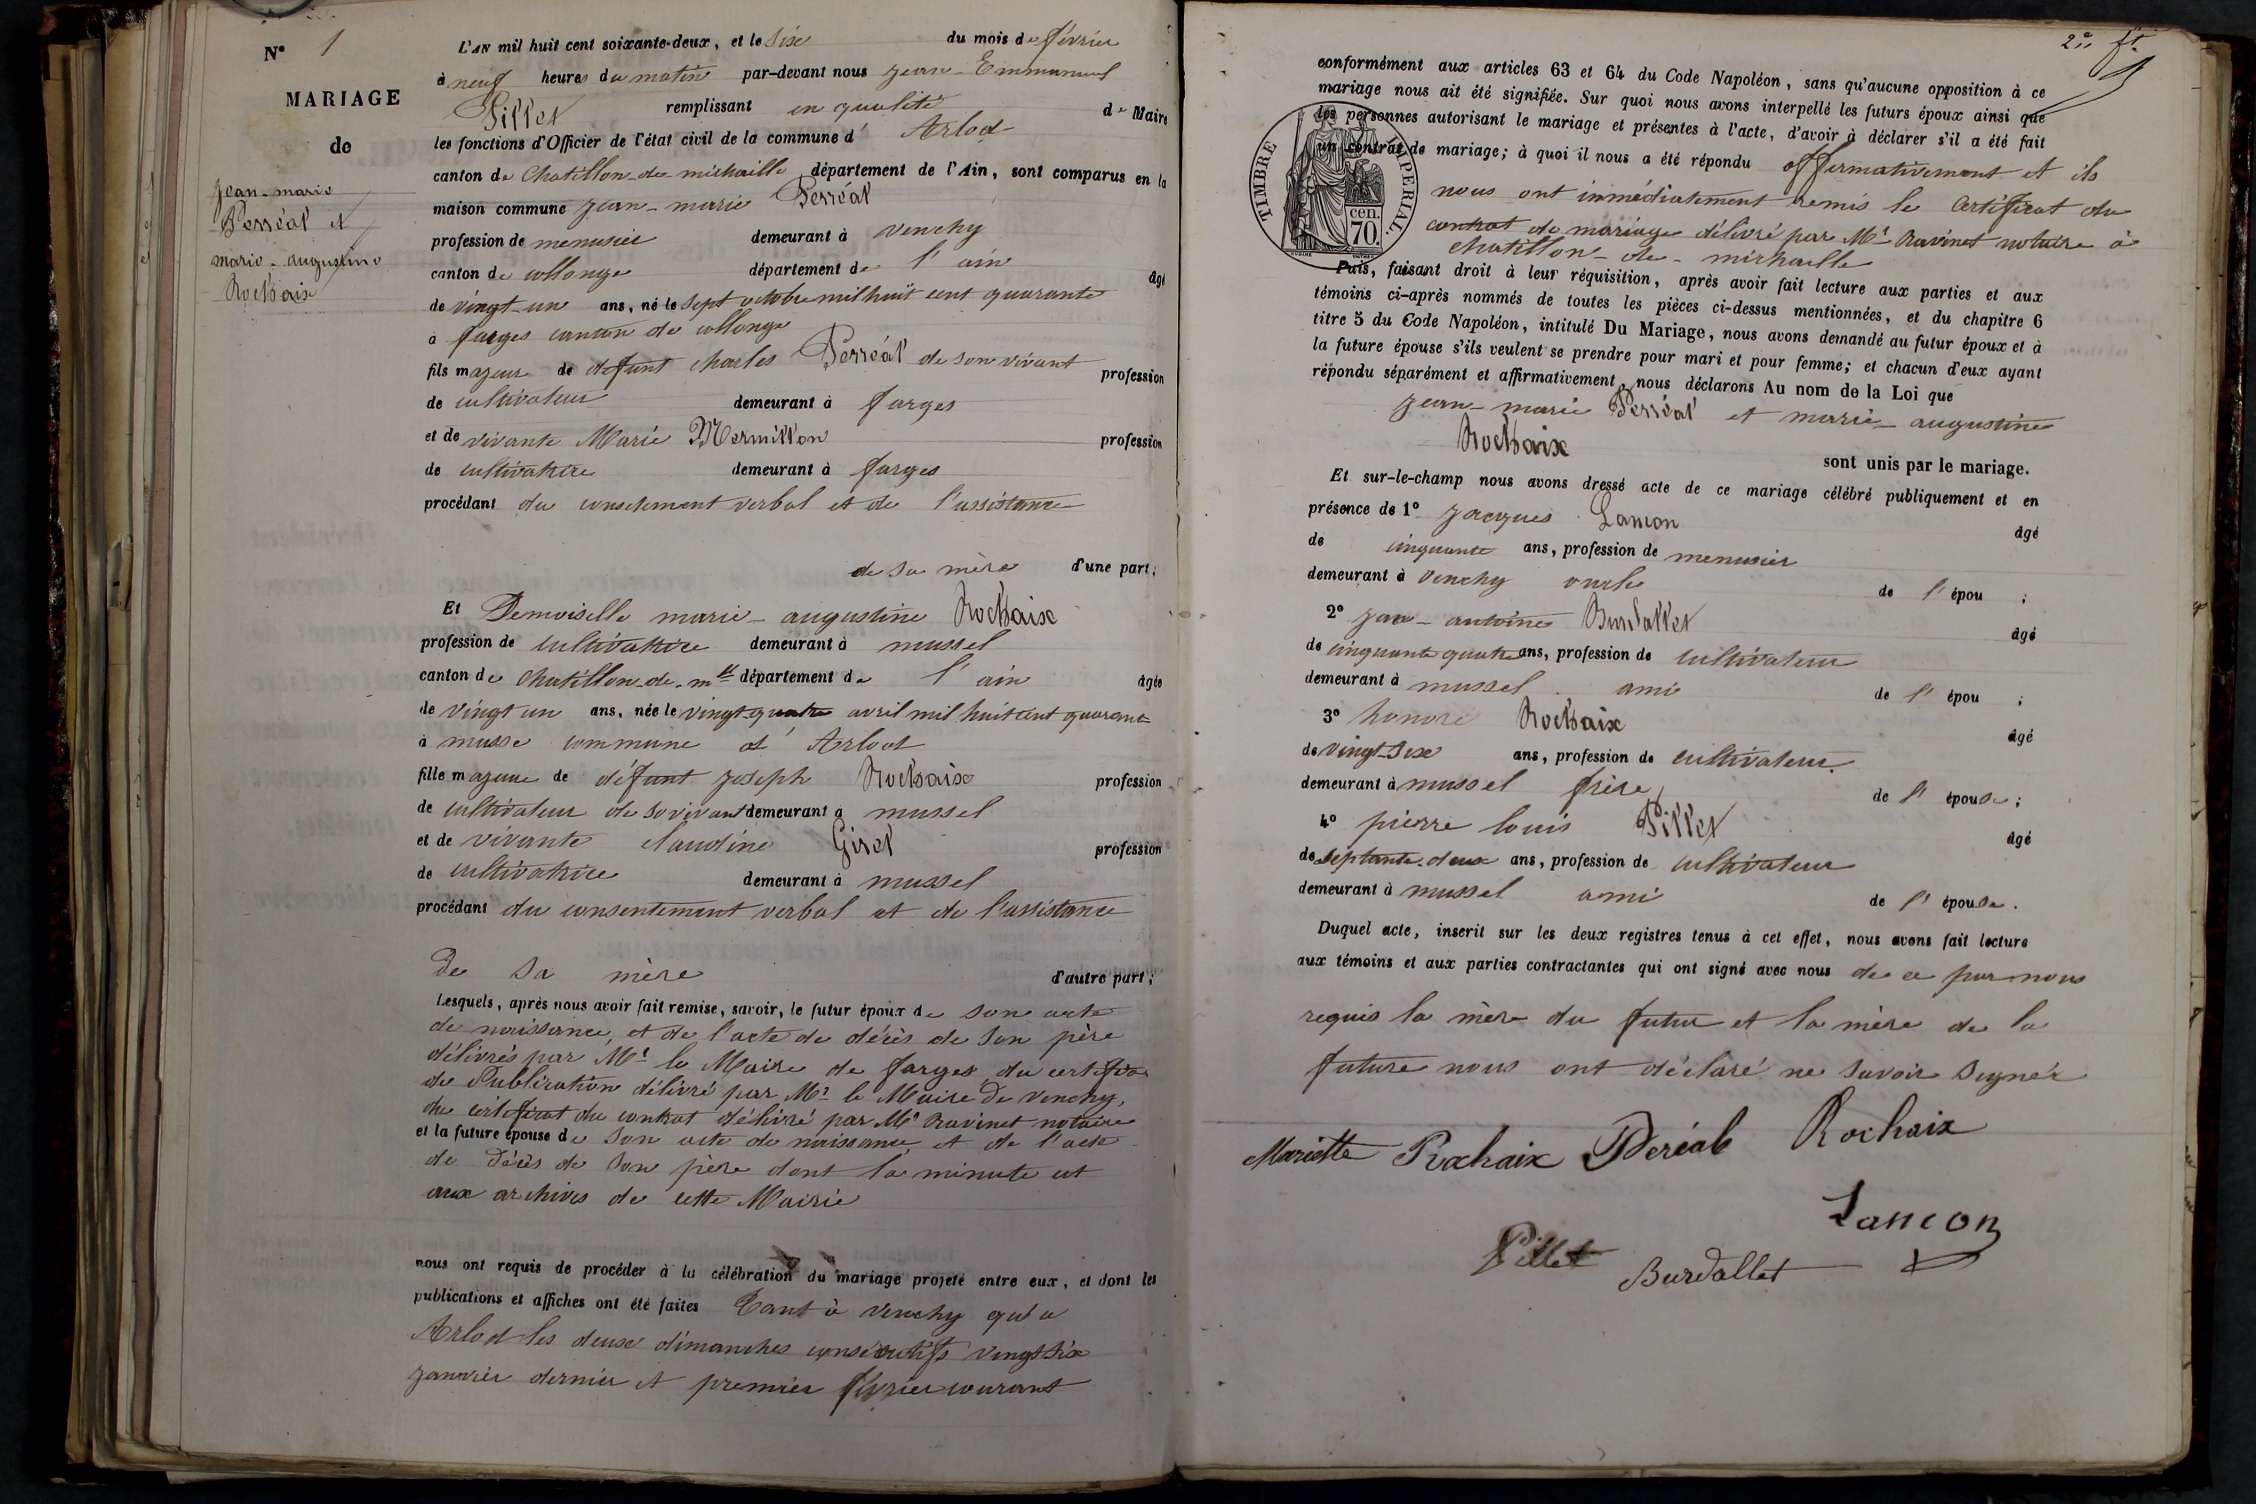 N° 1
MARIAGE
de
Jean-marie
Perréal et
marie-augustine
Rochaix
L'AN mil huit cent soixante-deux, et le six du mois de février
à neuf heures du matin par-devant nous Jean-Emmanuel
Pillet remplissant en qualité de Maire
les fonctions d'Officier de l'état civil de la commune d' Arlod
canton de Chatillon-de-michaille département de l'Ain, sont comparus en la
maison commune Jean-marie Perréal
profession de menusier demeurant à venchy
canton de collonge département de l'ain âgé
de vingt-un ans, né le sept octobre mil huit cent quarante
à farges canton de collonge
fils majeur de défunt charles Perréal de son vivant profession
de cultivateur demeurant à farges
et de vivante Marie Mermillon profession
de cultivatrice demeurant à farges
procédant du consetement verbal et de l'assistance
de sa mère d'une part;
Et Demoiselle marie-augustine Rochaix
profession de cultivatrice demeurant à mussel
canton de Chatillon-de-m^lle département de l'ain âgée
de vingt un ans, née le vingt-quatre avril mil huit cent quarante
à musse commune d'Arlod
fille majeure de défunt joseph Rochaix profession
de cultivateur de sovivant demeurant à mussel
et de vivante claudine Girel profession
de cultivatrice demeurant à mussel
procédant du consentement verbal et de l'assistance
De sa mère d'autre part;
Lesquels, après nous avoir fait remise, savoir, le futur époux de son acte
de naissance, et de l'acte de décès de son père
délivrés par M^r le Maire de farges, du certificat
de Publication délivré par M^r le Maire De venchy,
du certificat du contrat délivré par M^e Ravinet notaire
et la future épouse de son acte de naissance et de l'acte
de décès de son père dont la minute est
aux archives de cette Mairie
nous ont requis de procéder à la célébration du mariage projeté entre eux, et dont les
publications et affiches ont été faites Tant à venchy qu'a
Arlod les deux dimanches consécutifs vingt six
janvier dernier et premier février courant
2^e f^t
conformément aux articles 63 et 64 du Code Napoléon, sans qu'aucune opposition à ce
mariage nous ait été signifiée. Sur quoi nous avons interpellé les futurs époux ainsi que
les personnes autorisant le mariage et présentes à l'acte, d'avoir à déclarer s'il a été fait
un contrat de mariage; à quoi il nous a été répondu affirmativement et ils
nous ont immédiatement remis le certificat du
contrat de mariage délivré par M^e Ravinet notaire à
chatillon-de-michaille
TIMBRE IMPERIAL
cen.
70.
Puis, faisant droit à leur réquisition, après avoir fait lecture aux parties et aux
témoins ci-après nommés de toutes les pièces ci-dessus mentionnées, et du chapitre 6
titre 5 du Code Napoléon, intitulé Du Mariage, nous avons demandé au futur époux et à
la future épouse s'ils veulent se prendre pour mari et pour femme; et chacun d'eux ayant
répondu séparément et affirmativement, nous déclarons Au nom de la Loi que
Jean-marie Perréal et marie-augustine
Rochaix
sont unis par le mariage.
Et sur-le-champ nous avons dressé acte de ce mariage célébré publiquement et en
présence de 1° jacques Lancon âgé
de cinquante ans, profession de menusier
demeurant à venchy oncle de l'épou ;
2° jean-antoine Burdallet âgé
de cinquante quatre ans, profession de cultivateur
demeurant à mussel ami de l'épou ;
3° honoré Rochaix âgé
de vingt-six ans, profession de cultivateur
demeurant à mussel frère de l'épouse;
4° pierre louis Pillet âgé
de septante-deux ans, profession de cultivateur
demeurant à mussel ami de l'épouse.
Duquel acte, inscrit sur les deux registres tenus à cet effet, nous avons fait lecture
aux témoins et aux parties contractantes qui ont signé avec nous de ce par nous
requis la mère du futur et la mère de la
future nous ont déclaré ne savoir signer
Mariette Rochaix Peréal Rochaix
Lancon
Pillet Burdallet